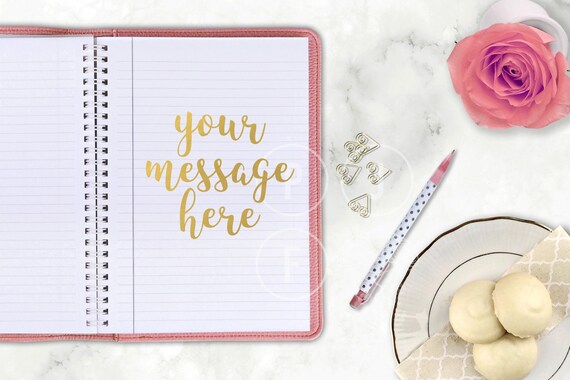 your
message
here